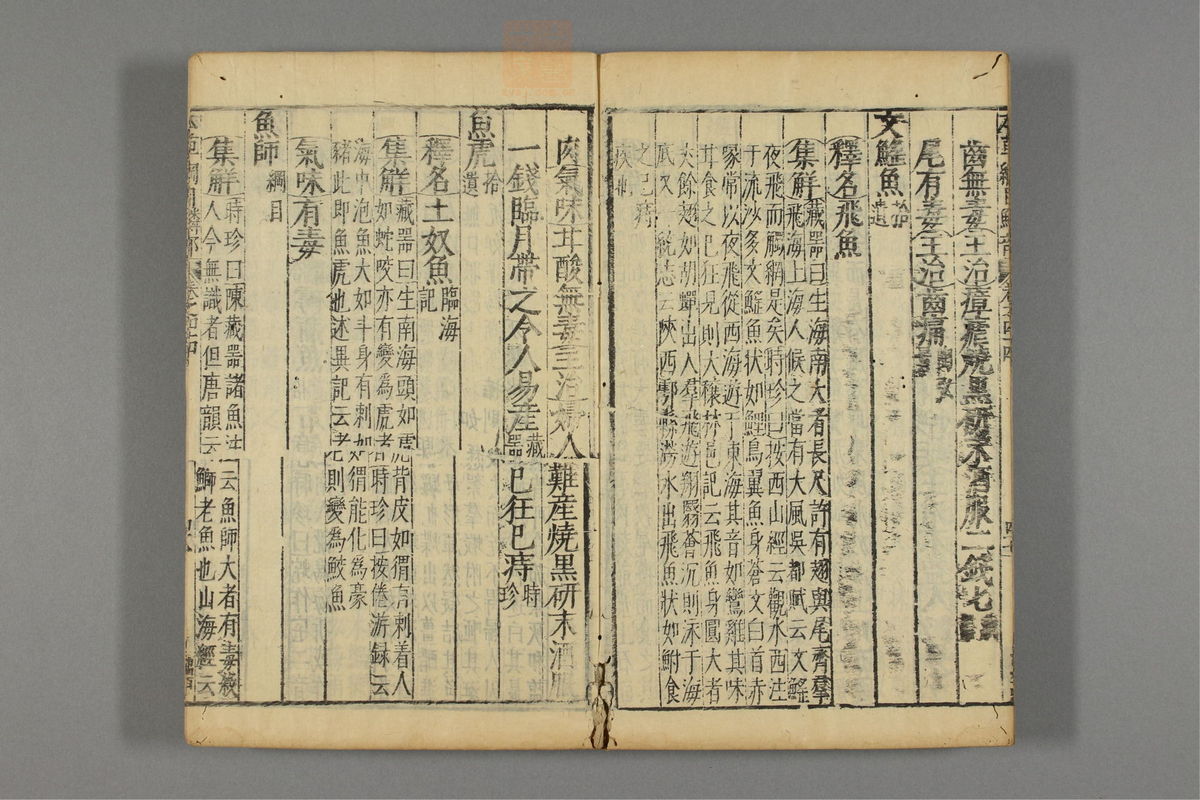 齒無毒主治瘴瘧燒黑研末酒服二錢
尾有毒主治齒痛
文鰩魚拾遺
釋名飛魚
集解藏器曰生海南大者長尺許有翅與尾齊羣
飛海上海人候之當有大風吳都賦云文鰩
夜飛而觸網是矣時珍曰按西山經云觀水西注
于流沙多文鰩魚狀如鯉鳥翼魚身蒼文白首赤
喙常以夜飛從西海遊于東海其音如鸞雞其味
甘食之已狂見則大穰林邑記云飛魚身圓大者
丈餘翅如胡蟬出入羣飛遊翔翳薈沉則泳于海
底又一統志云陝西鄠縣澇水出飛魚狀如鮒食
之已痔
疾也
肉氣味甘酸無毒主治婦人難産燒黑研末酒服
一錢臨月帶之令人易産藏器已狂已痔時珍
魚虎拾遺
釋名土奴魚臨海記
集解藏器曰生南海頭如虎背皮如猬有刺着人
如蛇咬亦有變爲虎者時珍曰按倦游録云
海中泡魚大如斗身有刺如猬能化爲豪
豬此即魚虎也述異記云老則變爲鮫魚
氣味有毒
魚師綱目
集解時珍曰陳藏器諸魚注云魚師大者有毒殺
人今無識者但唐韻云鰤老魚也山海經云